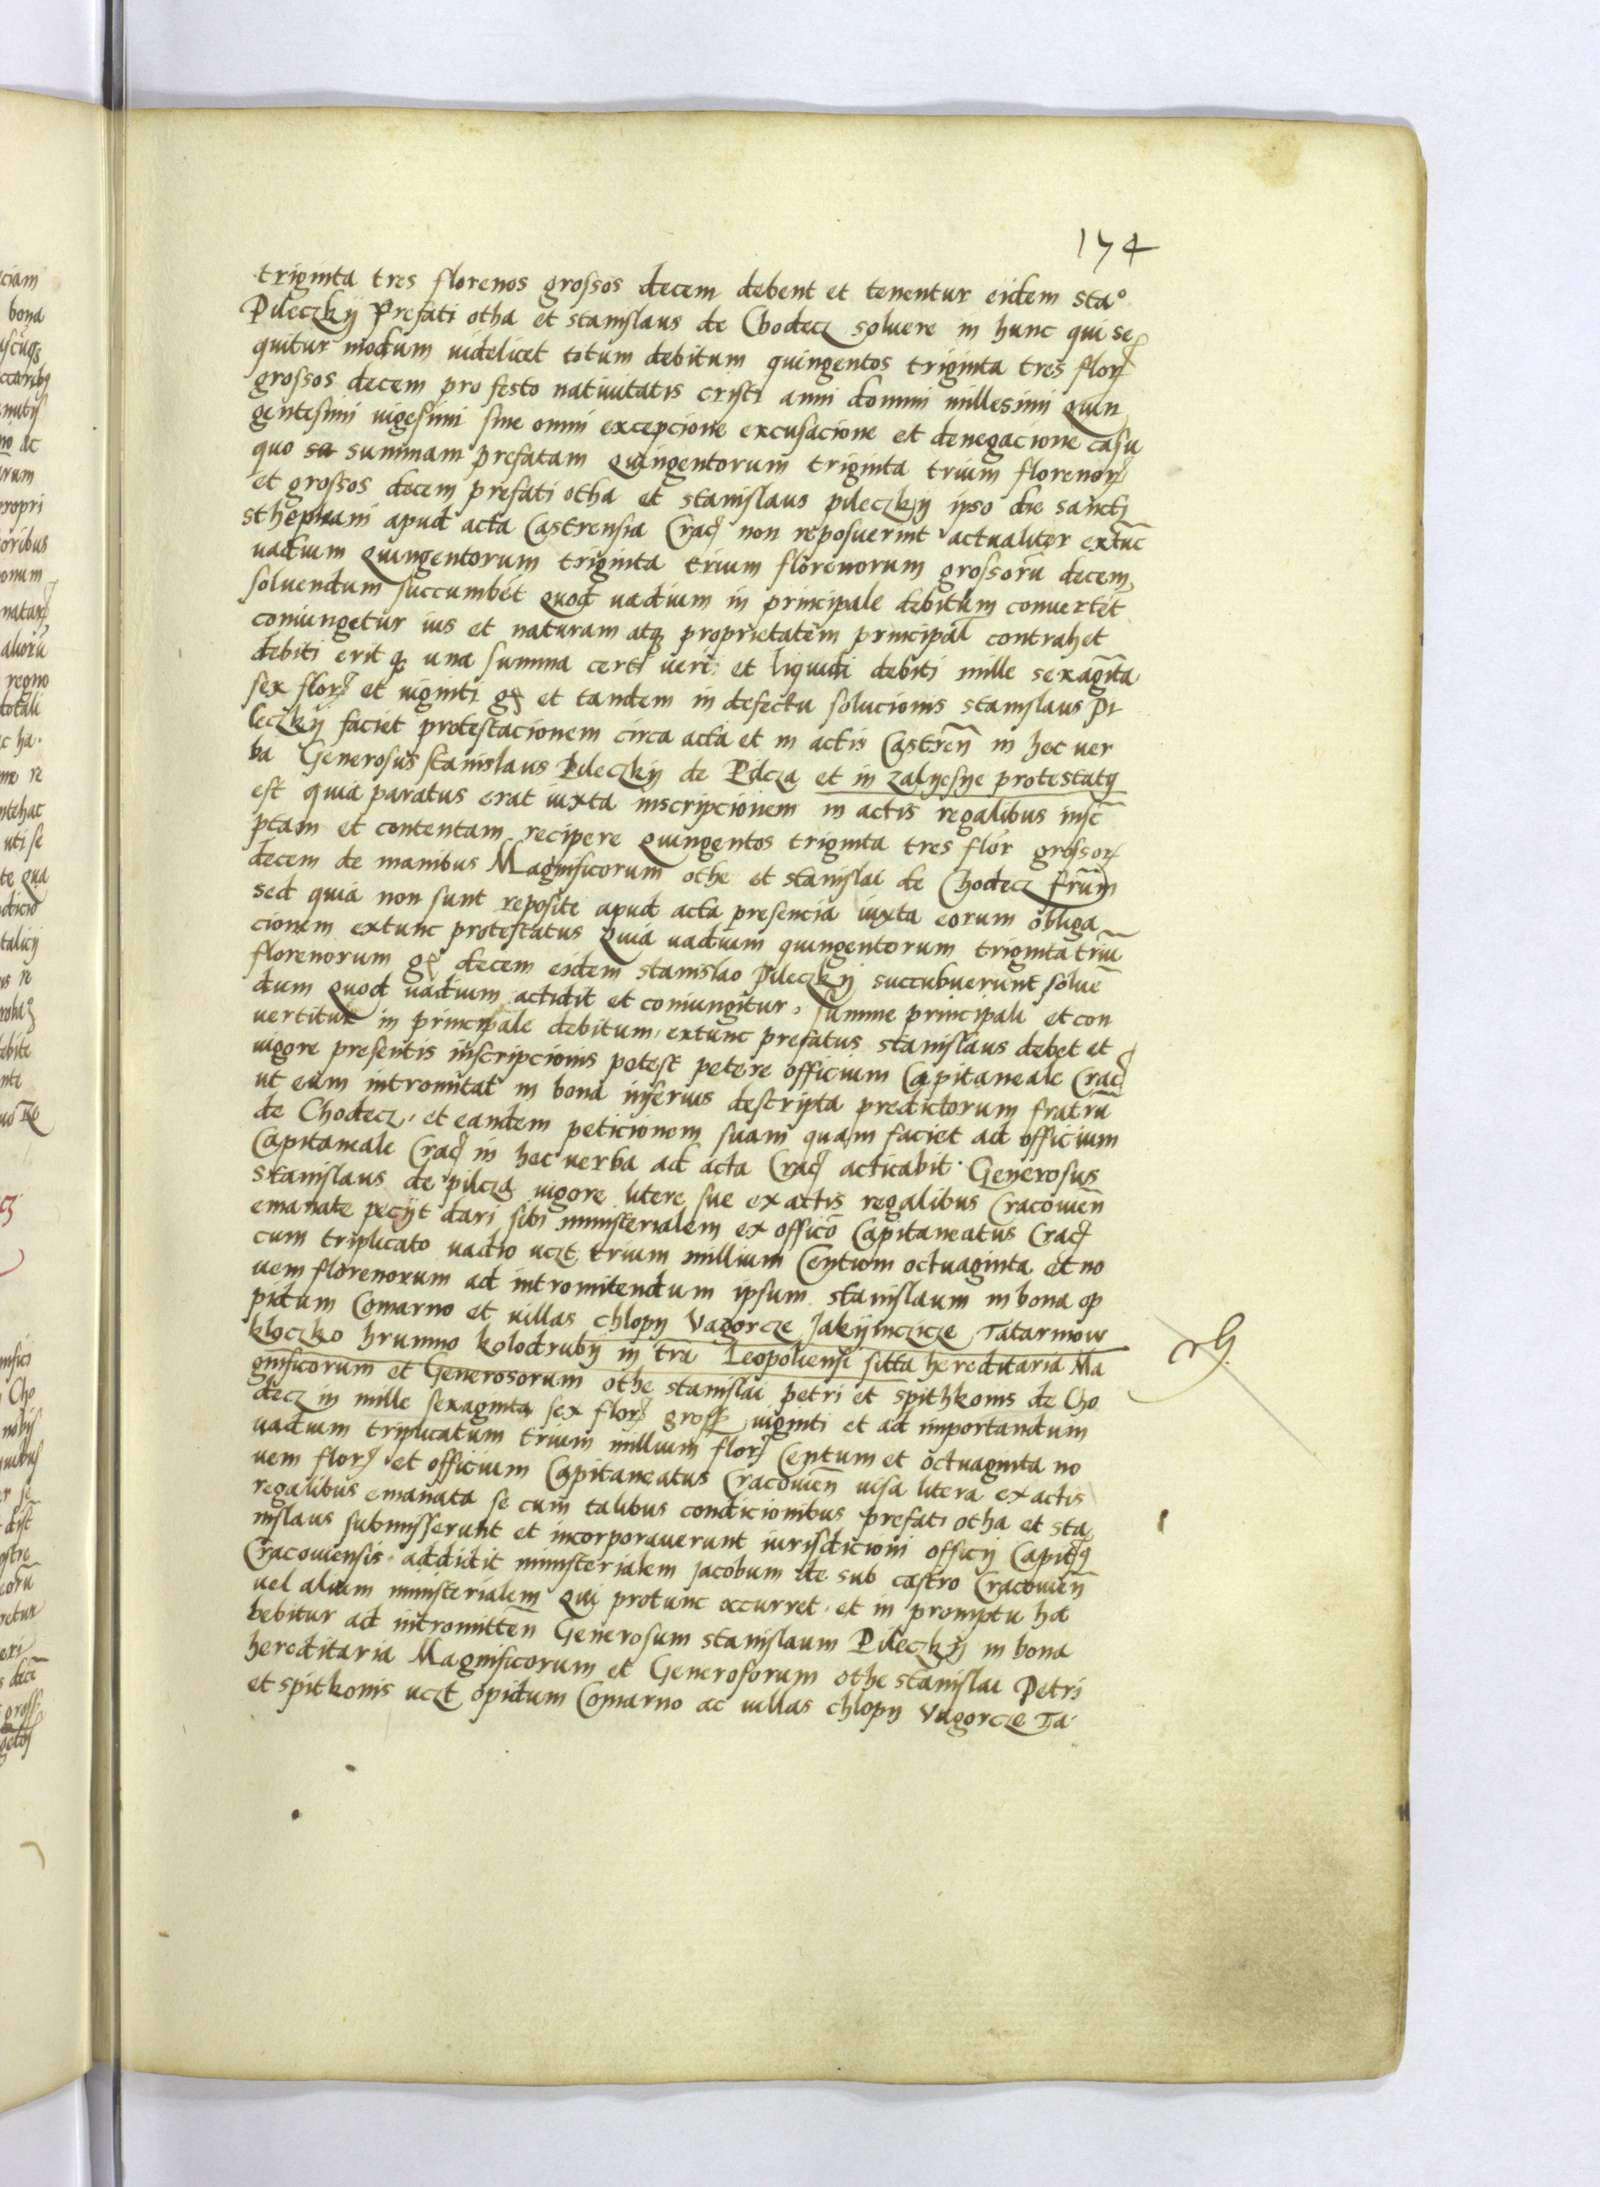 174
triginta tres florenos grossos decem debent et tenentur eidem sta°
Pileczkÿ Prefati otha et stanislaus de Chodecz soluere in hunc qui se
quitur modum uidelicet totum debitum quingentos triginta tres flor
grossos decem pro festo natiuitatis cristi anni domini millesimi Quin
gentesimi uigesimi sine omni excepcione excusacione et denegacione casu
quo su summam prefatam Quingentorum triginta trium florenor
et grossos decem prefati otha et stanislaus pileczkÿ ipso die sancti
sthephani apud acta Castrensia Crac non reposuerint actualiter extūc
uadium Quingentorum triginta trium florenorum grossorū decem
soluendum succumbēt Quod uadium in principale debitum conuertēt
coniungetur ius et naturam atq proprietatem principal contrahet
debiti erit q una summa certi ueri et liquidi debiti mille sexagīta
sex flor et uiginti gr et tandem in defectu solucionis stanislaus Pi
leczkÿ faciet protestacionem circa acta et in actis Castren̄ in hec uer
ba Generosus stanislaus Pileczkÿ de Pilcza et in zalyesye protestatq
est quia paratus erat iuxta inscripcionem in actis regalibus insc̄
ptam et contentam recipere Quingentos triginta tres flor grossor
decem de manibus Magnificorum othe et stanislai de Chodecz frūm
sed quia non sunt reposite apud acta presencia iuxta eorum obliga
cionem extunc protestatus Quia uadium quingentorum triginta triū
florenorum gr decem eidem stanislao Pileczkÿ succubuerunt soluē
dum Quod uadium actidit et coniungitur summe principali et con
uertitur in principale debitum extunc prefatus stanislaus debet et
uigore presentis inscripcionis potest petere officium Capitaneale Crac
ut eum intromitat in bona inferius descripta predictorum fratrū
de Chodecz et eandem peticionem suam quam faciet ad officium
Capitaniale Crac in hec uerba ad acta Crac acticabit Generosus
stanislaus de pilcza uigore litere sue ex actis regalibus Cracouien̄
emanate peciit dari sibi ministerialem ex officō Capitaneatus Crac
cum triplicato uadio uczt trium millium Centum octuaginta et no
uem florenorum ad intromitendum ipsum stanislaum in bona op
pidum Comarno et uillas chlopÿ Vagorcze Jakÿmczicze Tatarinow
kloczko hrumno kolodrubÿ in tra Leopoliensi sitta hereditaria Ma
gnificorum et Generosorum othe stanislai petri et spithkonis de Cho
decz in mille sexaginta sex flor gross uiginti et ad importandum
uadium triplicatum trium millium flor Centum et octuaginta no
uem flor et officium Capitaneatus Cracouien̄ uisa litera ex actis
regalibus emanata se cum talibus condicionibus prefati otha et sta
nislaus submisserunt et incorporauerunt iurisdicioni officÿ Capitq
Cracouiensis addidit ministerialem Jacobum de sub castro Cracouien̄
uel alium ministerialem Qui protunc occurret et in promptu ha
bebitur ad intromitten̄ Generosum stanislaum Pileczkÿ in bona
hereditaria Magnificorum et Generosorum othe stanislai Petri
et spitkonis uczt opidum Comarno ac uillas chlopÿ Vugorcze Ta